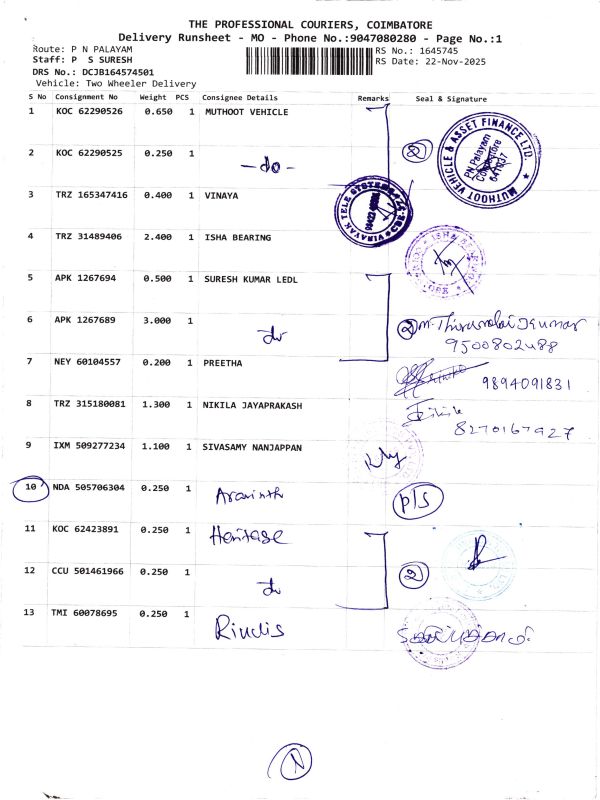 THE PROFESSIONAL COURIERS, COIMBATORE
Delivery Runsheet - MO - Phone No.:9047080280 - Page No.:1
Route: P N PALAYAM
RS No.: 1645745
Staff: P S SURESH
RS Date: 22-Nov-2025
DRS No.: DCJB164574501
Vehicle: Two Wheeler Delivery
S No Consignment No Weight PCS Consignee Details Remarks Seal & Signature
1 KOC 62290526 0.650 1 MUTHOOT VEHICLE
2
MUTHOOT VEHICLE & ASSET FINANCE LTD.
PN Palayam
Coimbatore
641037
2 KOC 62290525 0.250 1 -do-
3 TRZ 165347416 0.400 1 VINAYA
VINAYAK TELE SYSTEMS
4 TRZ 31489406 2.400 1 ISHA BEARING
5 APK 1267694 0.500 1 SURESH KUMAR LEDL
6 APK 1267689 3.000 1 do
2 m. Thirumalai Kumar
9500802488
7 NEY 60104557 0.200 1 PREETHA
9894091831
8 TRZ 315180081 1.300 1 NIKILA JAYAPRAKASH
8270167927
9 IXM 509277234 1.100 1 SIVASAMY NANJAPPAN
10 NDA 505706304 0.250 1 Aravinth P/S
11 KOC 62423891 0.250 1 Heritase
12 CCU 501461966 0.250 1 do 2
13 TMI 60078695 0.250 1 Rindis
N